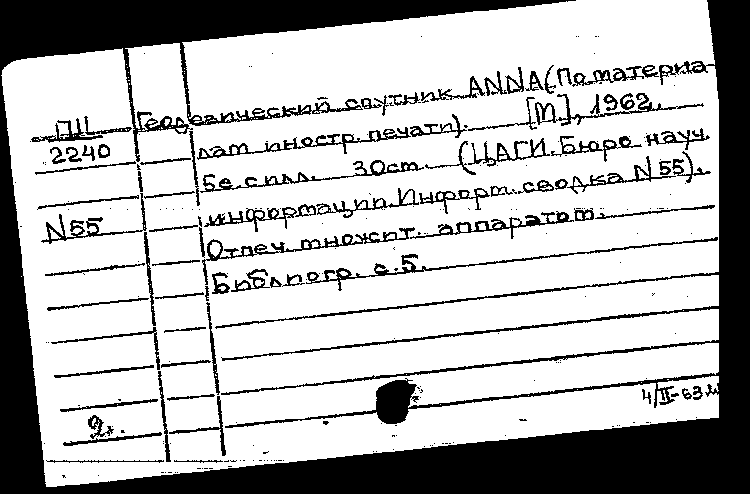 Геодезический спутник ANNA (По материа-
ПII
2240
лам иностр. печати). [М], 1962.
5 с. с илл. 30см. (ЦАГИ. Бюро науч.
N55
информации. Информ. сводка N55).
Отпеч. множит. аппаратом.
Библиогр. с.5.
4/II-63